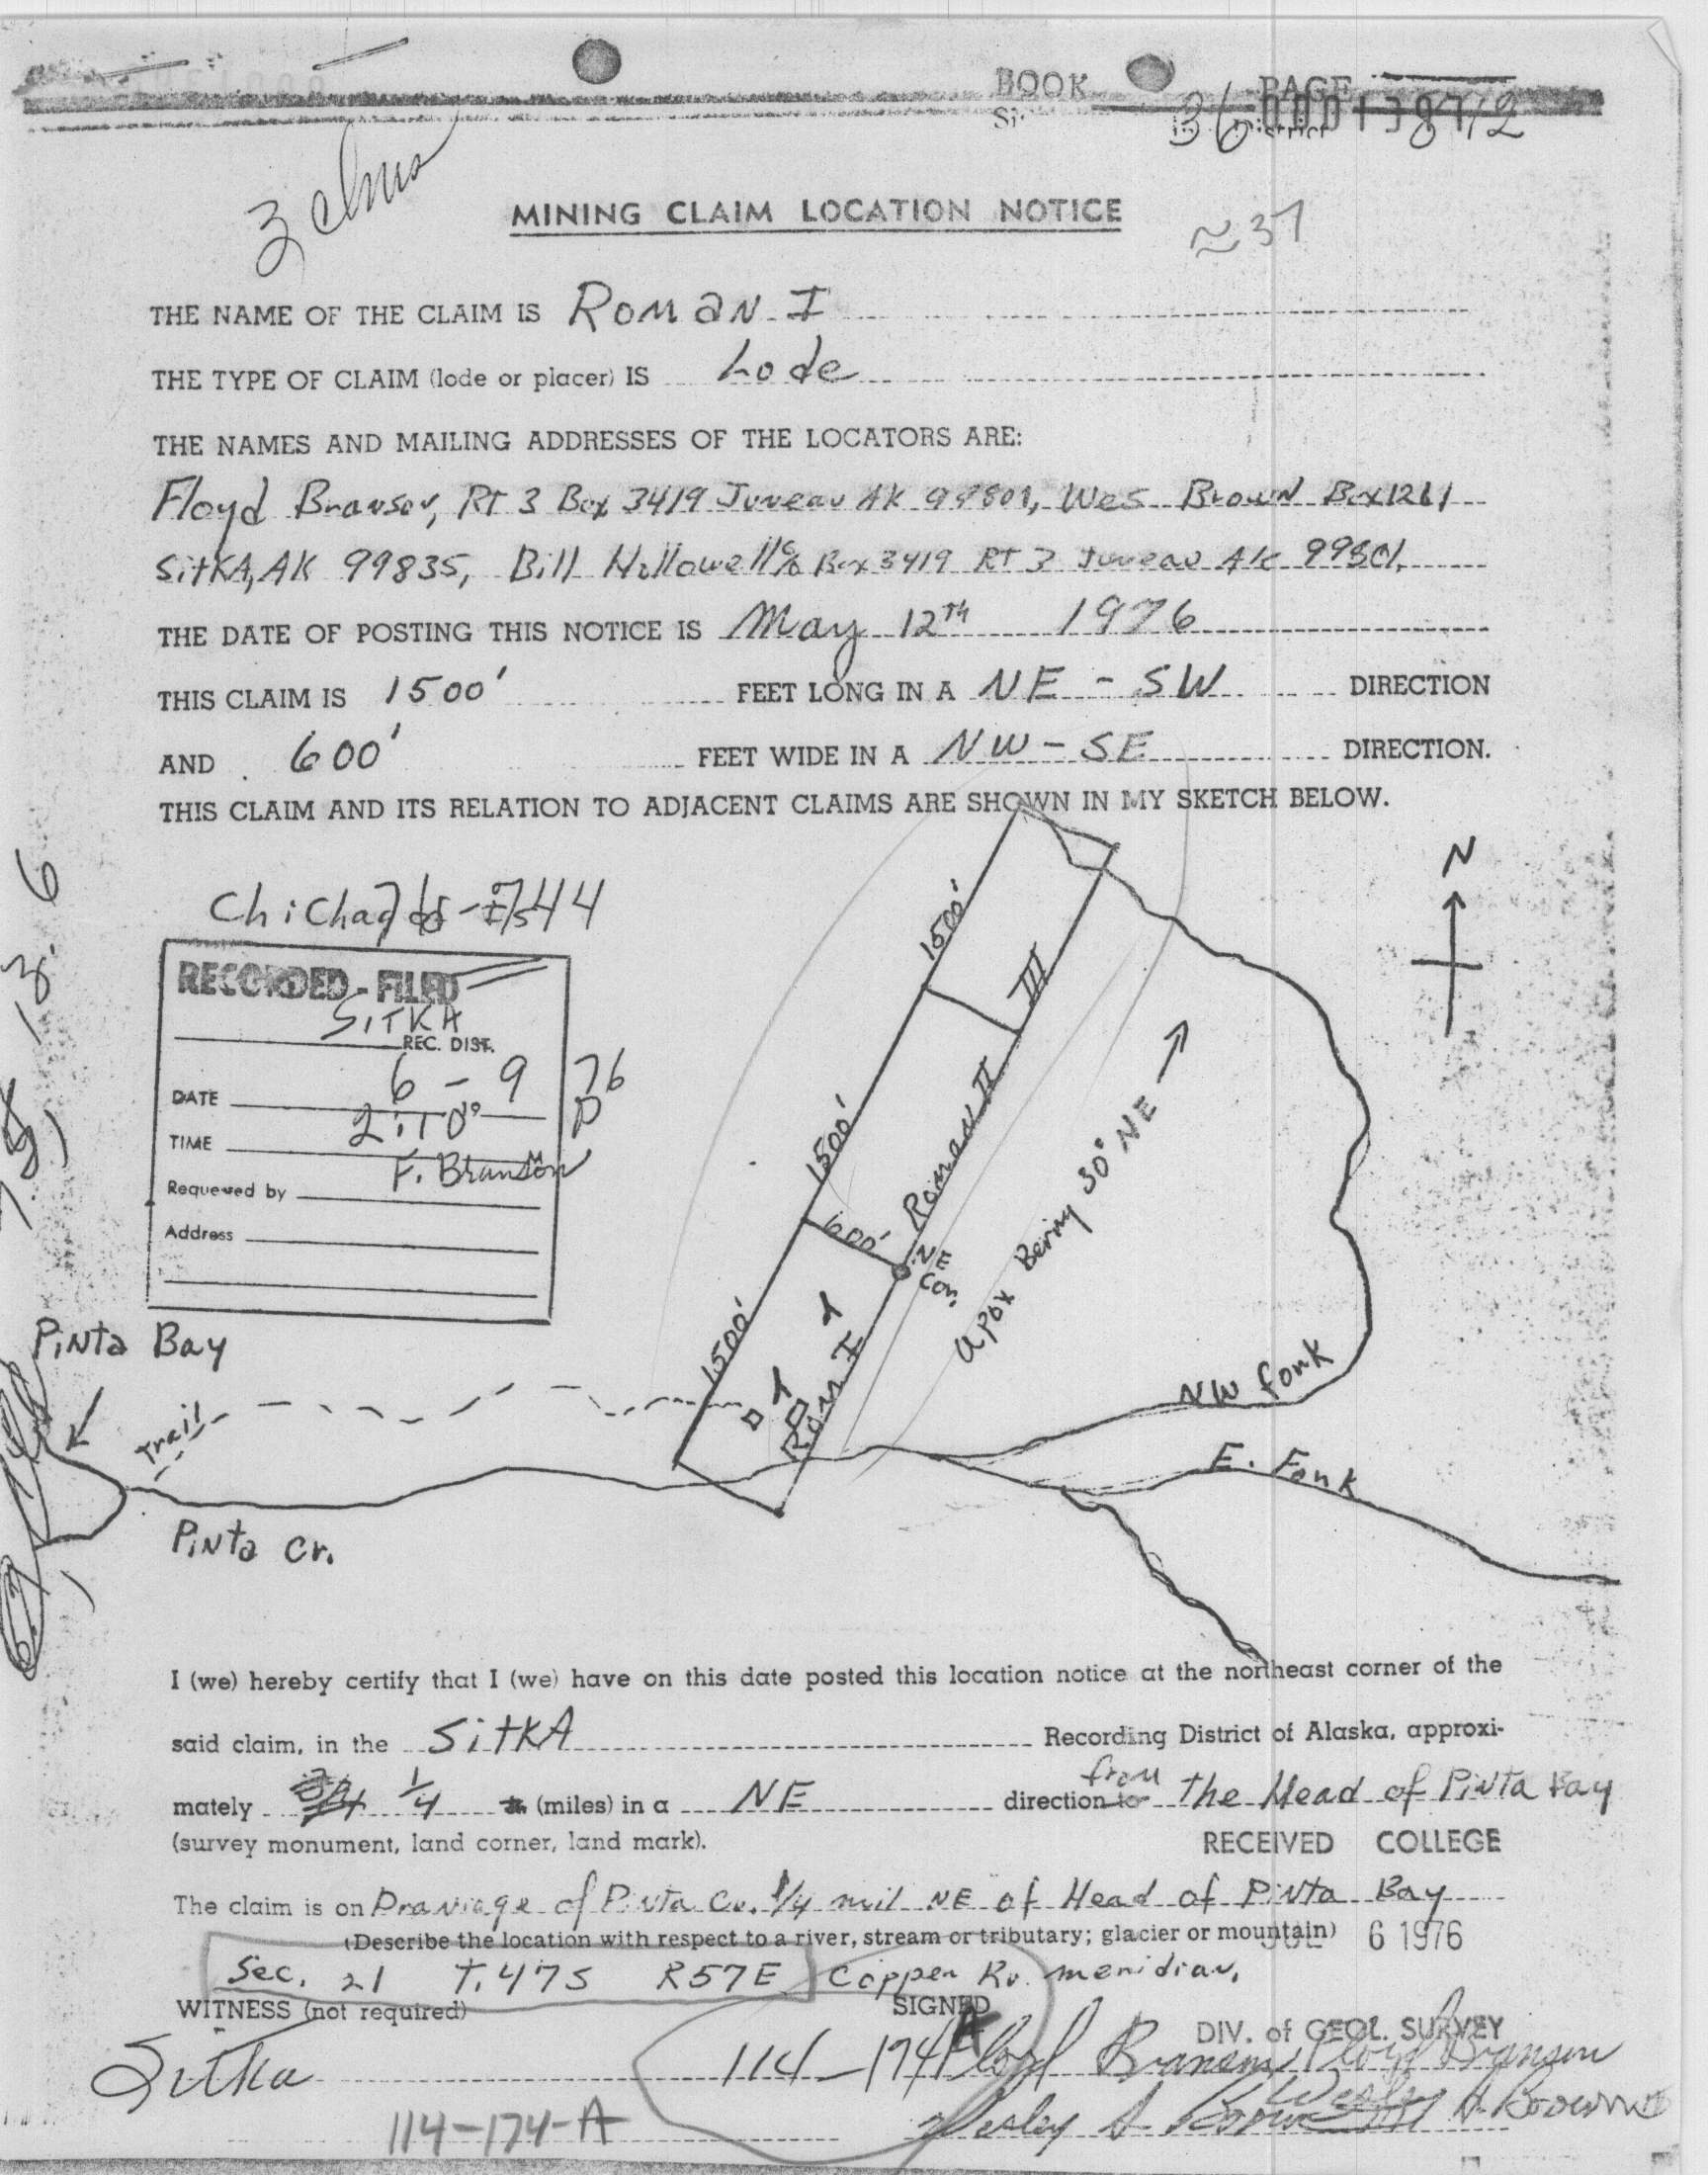 BOOK PAGE
36
MINING CLAIM LOCATION NOTICE
≈37
THE NAME OF THE CLAIM IS Roman I
THE TYPE OF CLAIM (lode or placer) IS Lode
THE NAMES AND MAILING ADDRESSES OF THE LOCATORS ARE:
Floyd Branson, RT 3 Box 3419 Juneau AK 99801, Wes Brown Box 1261
SitKA, AK 99835, Bill Hollowell c/o Box 3419 RT 3 Juneau AK 99801.
THE DATE OF POSTING THIS NOTICE IS May 12TH 1976
THIS CLAIM IS 1500' FEET LONG IN A NE - SW DIRECTION
AND 600' FEET WIDE IN A NW - SE DIRECTION.
THIS CLAIM AND ITS RELATION TO ADJACENT CLAIMS ARE SHOWN IN MY SKETCH BELOW.
N
1500'
III
RECORDED - FILED
SITKA
REC. DIST.
DATE 6 - 9 76
TIME P M
Requested by F. Branson
Address
1500'
Roman II
600'
NE Cor.
apox Bering 30° NE
1500'
Rom I
Pinta Bay
Trail
NW Fork
E. Fork
Pinta Cr.
I (we) hereby certify that I (we) have on this date posted this location notice at the northeast corner of the
said claim, in the SitKA Recording District of Alaska, approxi-
mately 1/4 (miles) in a NE direction from the Head of Pinta Bay
(survey monument, land corner, land mark).
RECEIVED COLLEGE
The claim is on Draniage of Pinta Cr. 1/4 mil NE of Head of Pinta Bay
(Describe the location with respect to a river, stream or tributary; glacier or mountain)
JUL 6 1976
Sec. 21 T.47S R57E Copper Rv. meridian.
WITNESS (not required) SIGNED
DIV. of GEOL. SURVEY
Sitka 114-174A Floyd Branson Floyd Branson
Wesley A Brown Wesley A. Brown
114-174-A